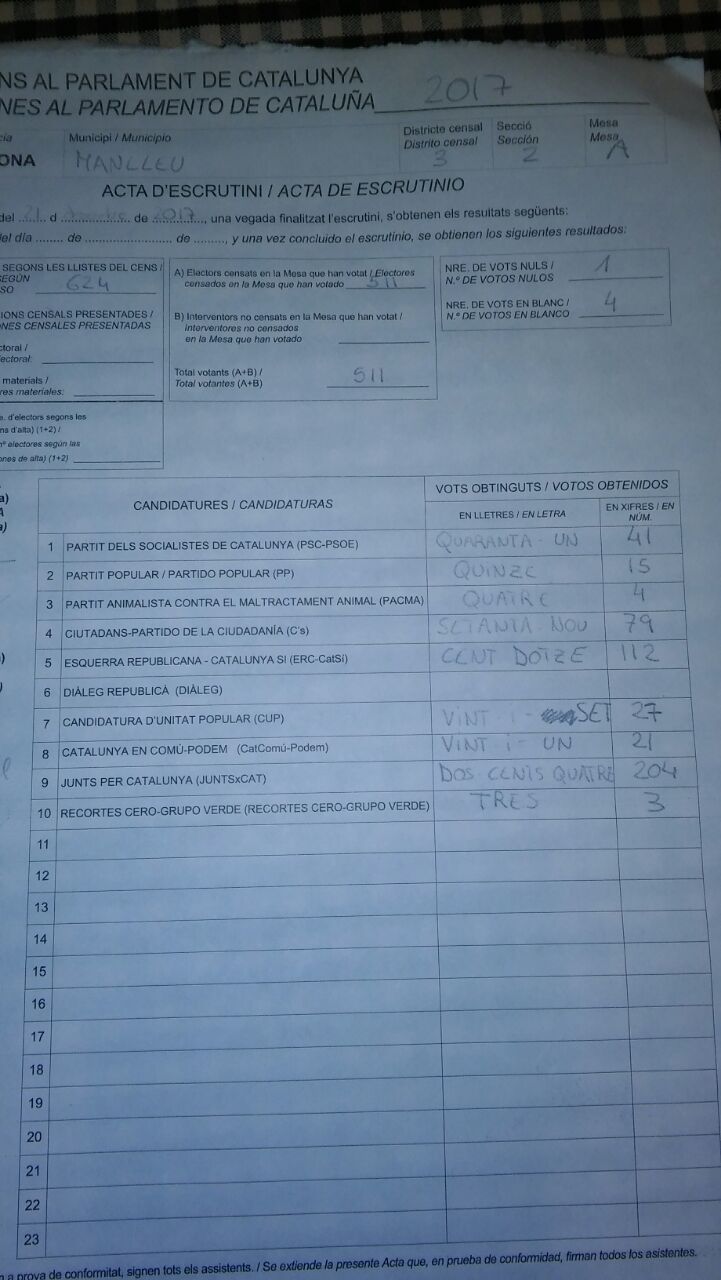 NS AL PARLAMENT DE CATALUNYA
NES AL PARLAMENTO DE CATALUÑA 2017
cía Municipi / Municipio Districte censal Secció Mesa
Distrito censal Sección Mesa
ONA MANLLEU 3 2 A
ACTA D'ESCRUTINI / ACTA DE ESCRUTINIO
del 21 d de 2017, una vegada finalitzat l'escrutini, s'obtenen els resultats següents:
el día ........ de ........................ de ........, y una vez concluido el escrutinio, se obtienen los siguientes resultados:
SEGONS LES LLISTES DEL CENS /
EGÚN
SO 624
IONS CENSALS PRESENTADES /
NES CENSALES PRESENTADAS
ctoral /
ectoral:
materials /
res materiales:
a. d'electors segons les
ns d'alta) (1+2) /
nº electores según las
ones de alta) (1+2)
A) Electors censats en la Mesa que han votat / Electores
censados en la Mesa que han votado 511
B) Interventors no censats en la Mesa que han votat /
interventores no censados
en la Mesa que han votado
Total votants (A+B) /
Total votantes (A+B) 511
NRE. DE VOTS NULS /
N.º DE VOTOS NULOS 1
NRE. DE VOTS EN BLANC /
N.º DE VOTOS EN BLANCO 4
a)
A
a)
CANDIDATURES / CANDIDATURAS VOTS OBTINGUTS / VOTOS OBTENIDOS
EN LLETRES / EN LETRA EN XIFRES / EN NÚM.
1 PARTIT DELS SOCIALISTES DE CATALUNYA (PSC-PSOE) QUARANTA - UN 41
2 PARTIT POPULAR / PARTIDO POPULAR (PP) QUINZE 15
3 PARTIT ANIMALISTA CONTRA EL MALTRACTAMENT ANIMAL (PACMA) QUATRE 4
4 CIUTADANS-PARTIDO DE LA CIUDADANÍA (C's) SETANTA NOU 79
5 ESQUERRA REPUBLICANA - CATALUNYA SI (ERC-CatSí) CENT DOTZE 112
6 DIÀLEG REPUBLICÀ (DIÀLEG)
7 CANDIDATURA D'UNITAT POPULAR (CUP) VINT - i - SET 27
8 CATALUNYA EN COMÚ-PODEM (CatComú-Podem) VINT - i - UN 21
9 JUNTS PER CATALUNYA (JUNTSxCAT) DOS CENTS QUATRE 204
10 RECORTES CERO-GRUPO VERDE (RECORTES CERO-GRUPO VERDE) TRES 3
11
12
13
14
15
16
17
18
19
20
21
22
23
n a prova de conformitat, signen tots els assistents. / Se extiende la presente Acta que, en prueba de conformidad, firman todos los asistentes.